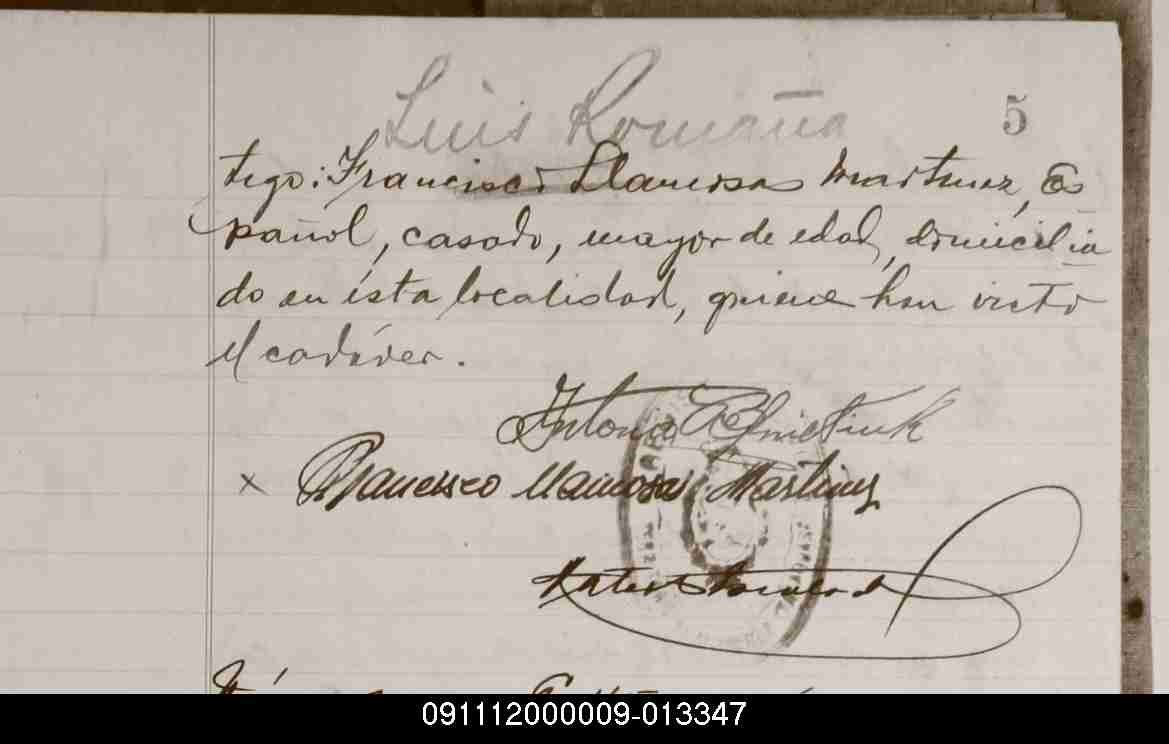 Luis Romaña
5
tigo: Francisco Llamosas Martinez, Es
pañol, casado, mayor de edad, domicilia
do en ésta localidad, quiene han visto
el cadáver.
Antonio
x Francisco Llamosas Martinez
091112000009-013347